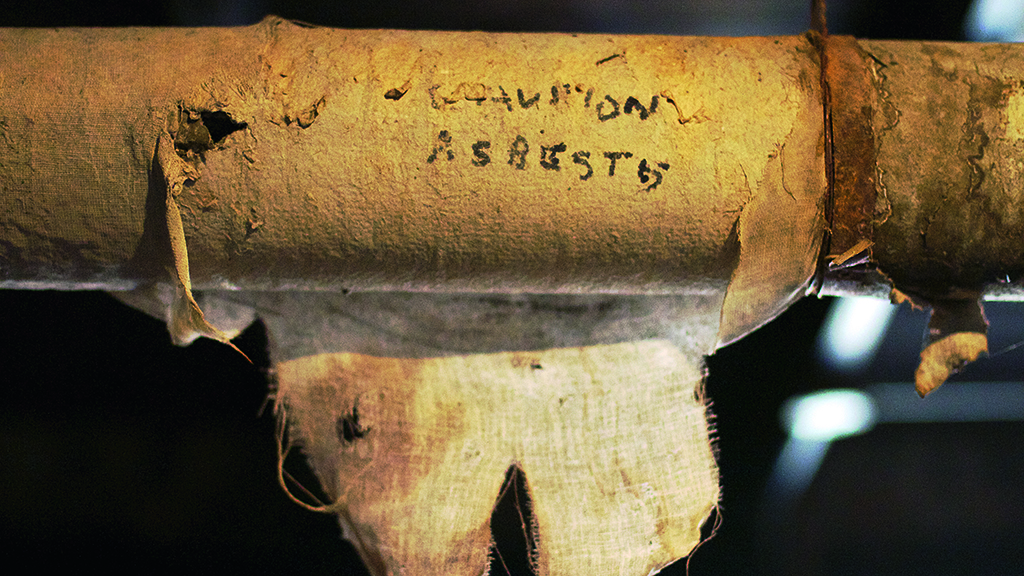 CAUTION
ASBESTOS